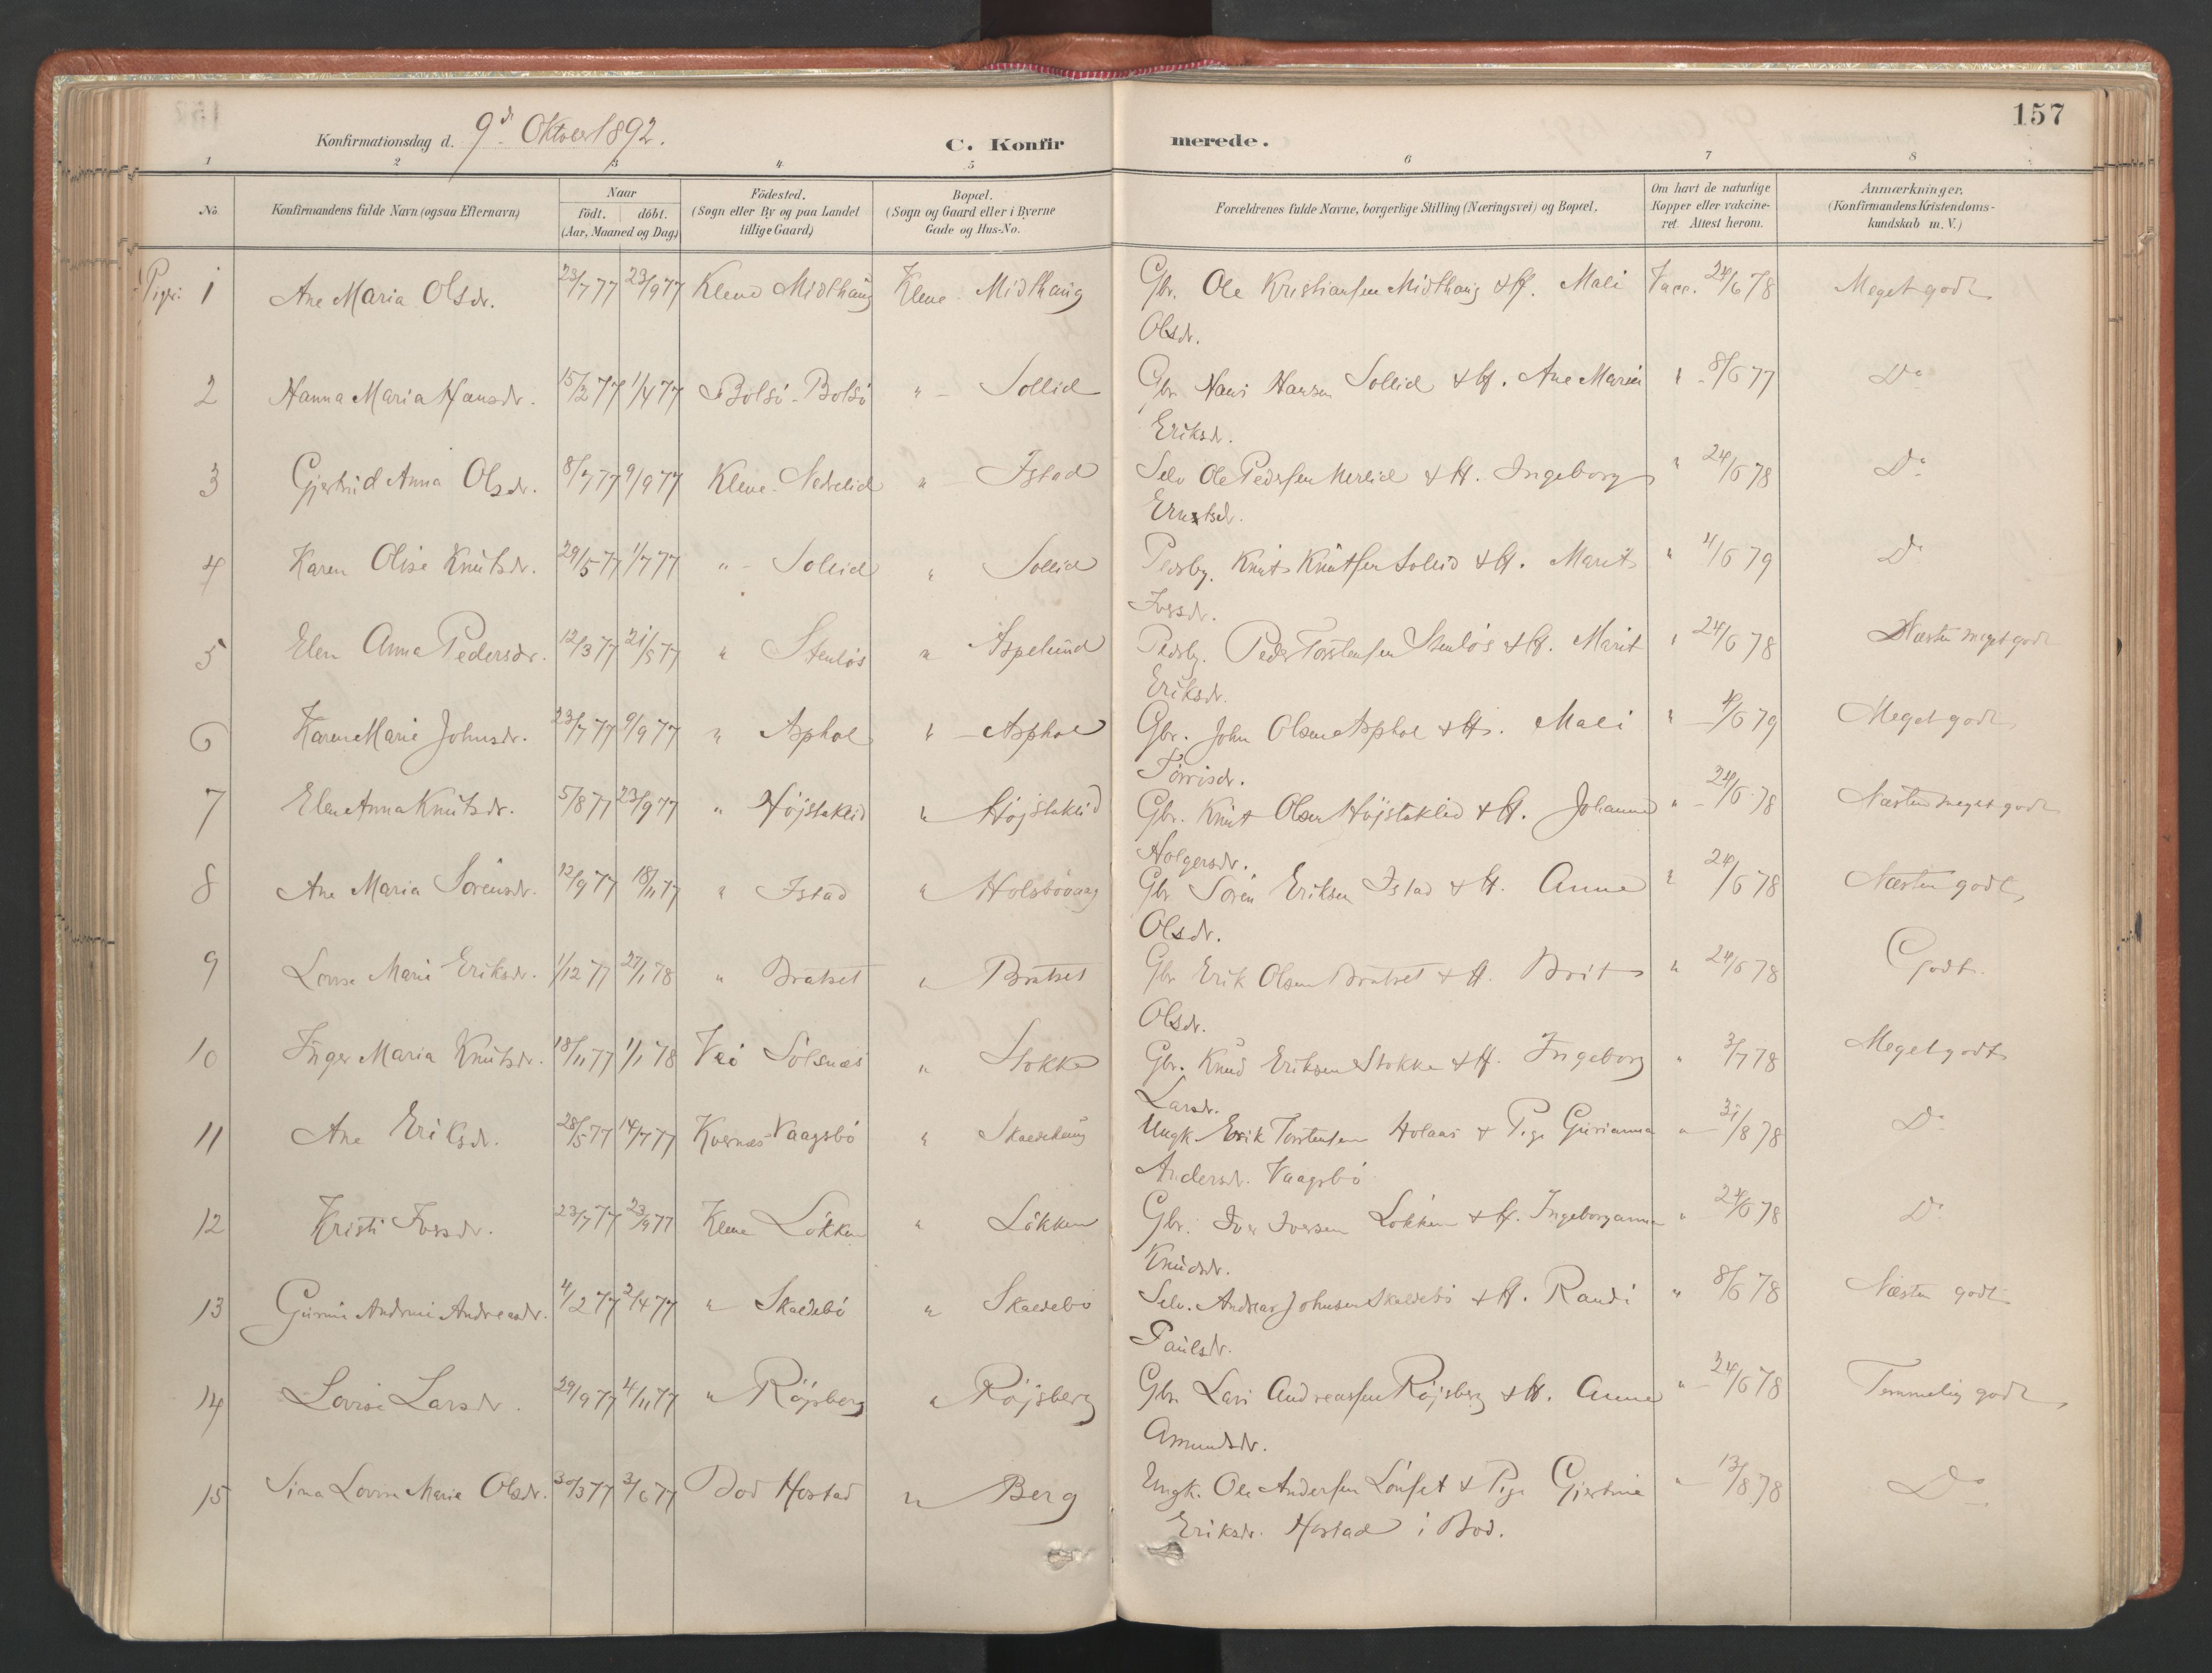 157
Konfirmationsdag d. 9de Oktober 1892.
C. Konfirmerede.
1 2 3 4 5 6 7 8
No.
Konfirmandens fulde Navn (ogsaa Efternavn)
Naar
födt. döbt.
(Aar, Maaned og Dag)
Födested.
(Sogn eller By og paa Landet
tillige Gaard)
Bopæl.
(Sogn og Gaard eller i Byerne
Gade og Hus-No.
Forældrenes fulde Navne, borgerlige Stilling (Næringsvei) og Bopæl.
Om havt de naturlige
Kopper eller vakcine-
ret. Attest herom.
Anmærkninger.
(Konfirmandens Kristendoms-
kundskab m. V.)
Piger: 1 Ane Maria Olsdr. 23/7 77 23/9 77 Kleive Midthaug Kleive Midthaug Gbr. Ole Kristiansen Midthaug & H. Mali Vacc. 24/6 78 Meget godt
Olsdr.
2 Hanna Maria Hansdr. 15/2 77 1/4 77 Bolsö - Bolsö " - Sollid Gbr. Hans Hansen Sollid & H. Ane Maria " 8/6 77 Do
Eriksdr.
3 Gjertrid Anna Olsdr. 8/7 77 9/9 77 Kleive - Nedrelid " - Istad Selv. Ole Pedersen Nerlid & H. Ingeborg " 24/6 78 Do
Ernstsdr.
4 Karen Olise Knutsdr. 29/5 77 1/7 77 " - Sollid " Sollid Pladsbg. Knut Knutsen Sollid & H. Marit " 4/6 79 Do
Iversdr.
5 Elen Anna Pedersdr. 12/3 77 21/5 77 " Stenlös " Aspelund Pladsbg. Peder Torstensen Stenlös & H. Marit " 24/6 78 Næsten meget godt
Eriksdr.
6 Karen Marie Johnsdr. 23/7 77 9/9 77 " Asphol " - Asphol Gbr. John Olsen Asphol & H. Mali " 4/6 79 Meget godt
Torrisdr.
7 Elen Anna Knutsdr. 5/8 77 23/9 77 " Höjstaklid " Höjstaklid Gbr. Knut Olsen Höjstaklid & H. Johanna " 24/6 78 Næsten meget godt
Holgersdr.
8 Ane Maria Sörensdr. 12/9 77 18/11 77 " Istad " Holsbövaag Gbr. Sören Eriksen Istad & H. Anne " 24/6 78 Næsten godt
Olsdr.
9 Lovise Marie Eriksdr. 1/12 77 27/1 78 " Bratset " Bratset Gbr. Erik Olsen Bratset & H. Brit " 24/6 78 Godt
Olsdr.
10 Inger Maria Knutsdr. 18/11 77 1/1 78 Veö Sölsnæs " Stokke Gbr. Knud Eriksen Stokke & H. Ingeborg " 3/7 78 Meget godt
Larsdr.
11 Ane Eriksdr. 28/5 77 14/7 77 Kvernæs Vaagsbö " Ungk. Erik Torstensen Holaas & Pige Gurianna " 31/8 78 Do
Andersdr. Vaagsbö
12 Kristi Iversdr. 23/7 77 23/9 77 Kleive Lökken " Lökken Gbr. Iver Iversen Lökken & H. Ingeborganna " 24/6 78 Do
Knudsdr.
13 Gurine Andrine Andreasdr. 4/2 77 2/4 77 " Skaldebö " Skaldebö Selv. Andreas Johnsen Skaldebö & H. Randi " 8/6 78 Næsten godt
Paulsdr.
14 Lovise Larsdr. 29/9 77 4/11 77 " Röjsberg " Röjsberg Gbr. Lars Andreassen Röjsberg & H. Anne " 24/6 78 Temmelig godt
Amundsdr.
15 Sina Lovise Marie Olsdr. 30/3 77 3/6 77 Bod Hostad " Berg Ungk. Ole Andersen Lönset & Pige Gjertine " 13/8 78 Do
Eriksdr. Hostad i Bod.